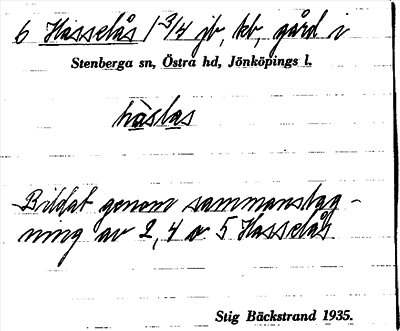 6 Hasselås 1 3/4 jb, kb, gård i
Stenberga sn, Östra hd, Jönköpings l.
häslas
Bildat genom sammanslag-
ning av 2, 4 o 5 Hasselås.
Stig Bäckstrand 1935.